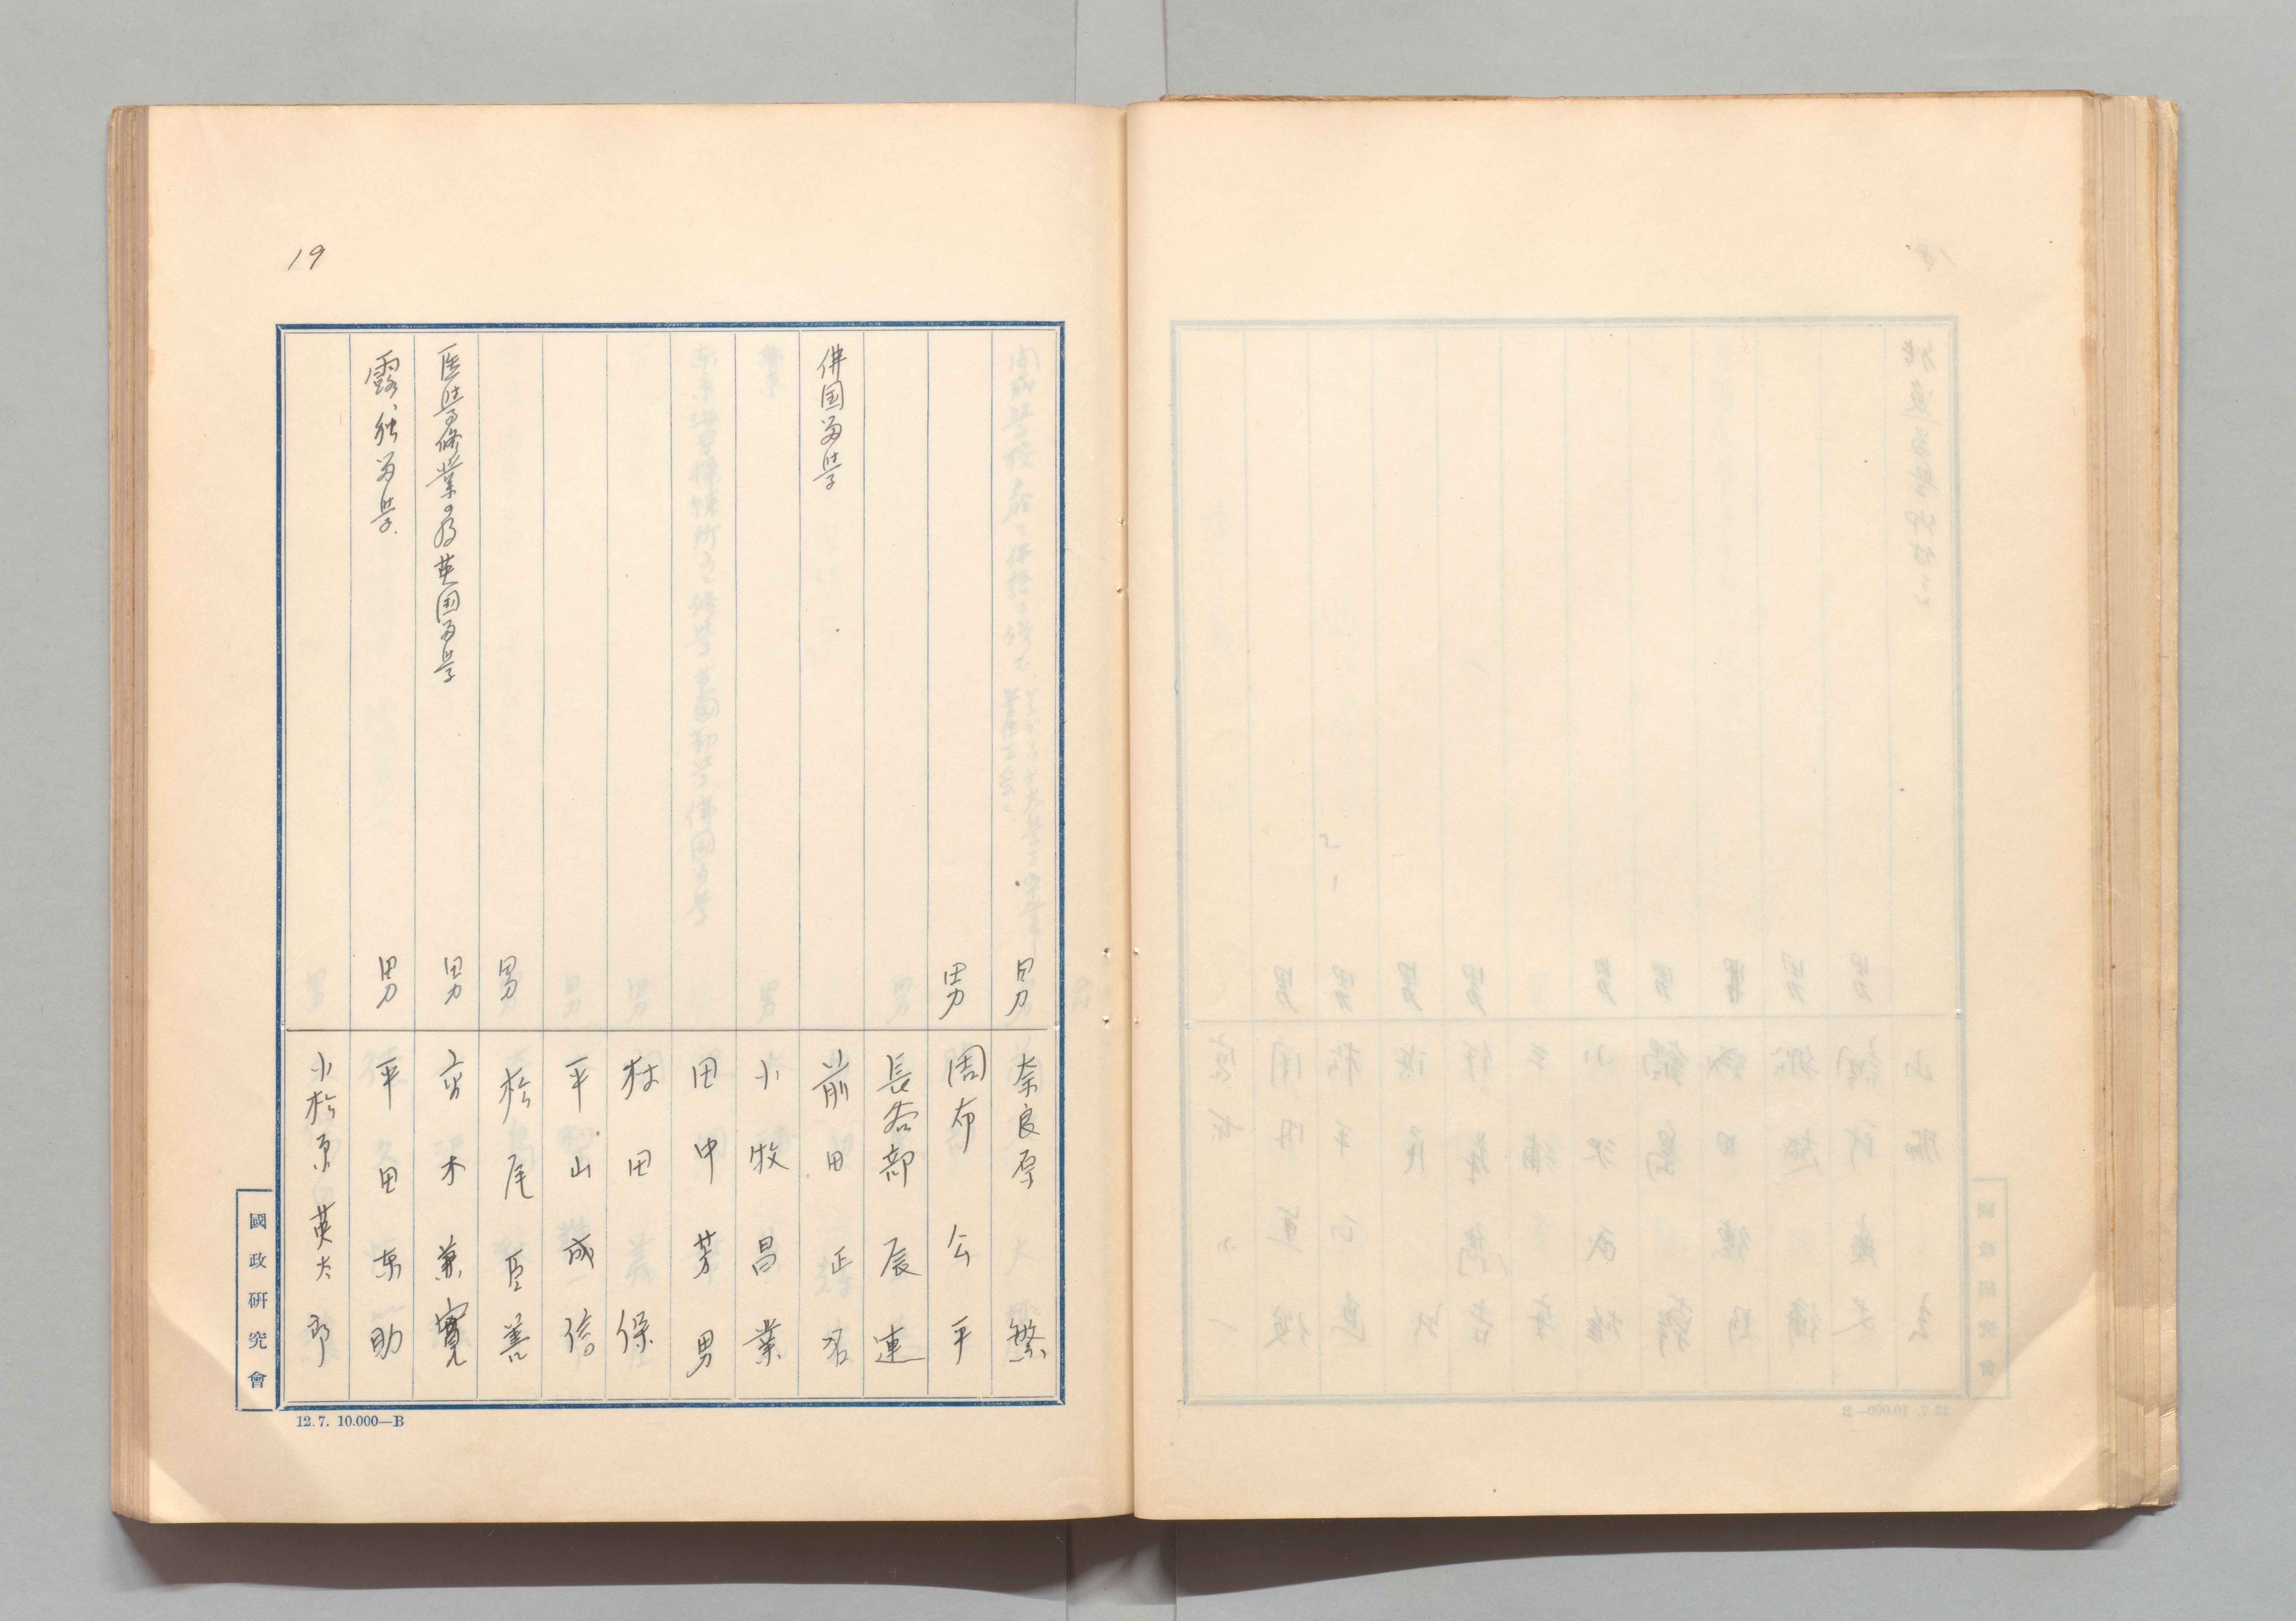 19
男 奈良原 繁
男 周布 公平
長谷部 辰連
佛国留学 前田 正名
小牧 昌業
田中 芳男
村田 保
平山 成信
男 松尾 臣善
医学修業の為英国留学 男 高木 兼寛
露、独留学. 男 平田 東助
小松原 英太郎
國政研究會
12.7. 10.000—B